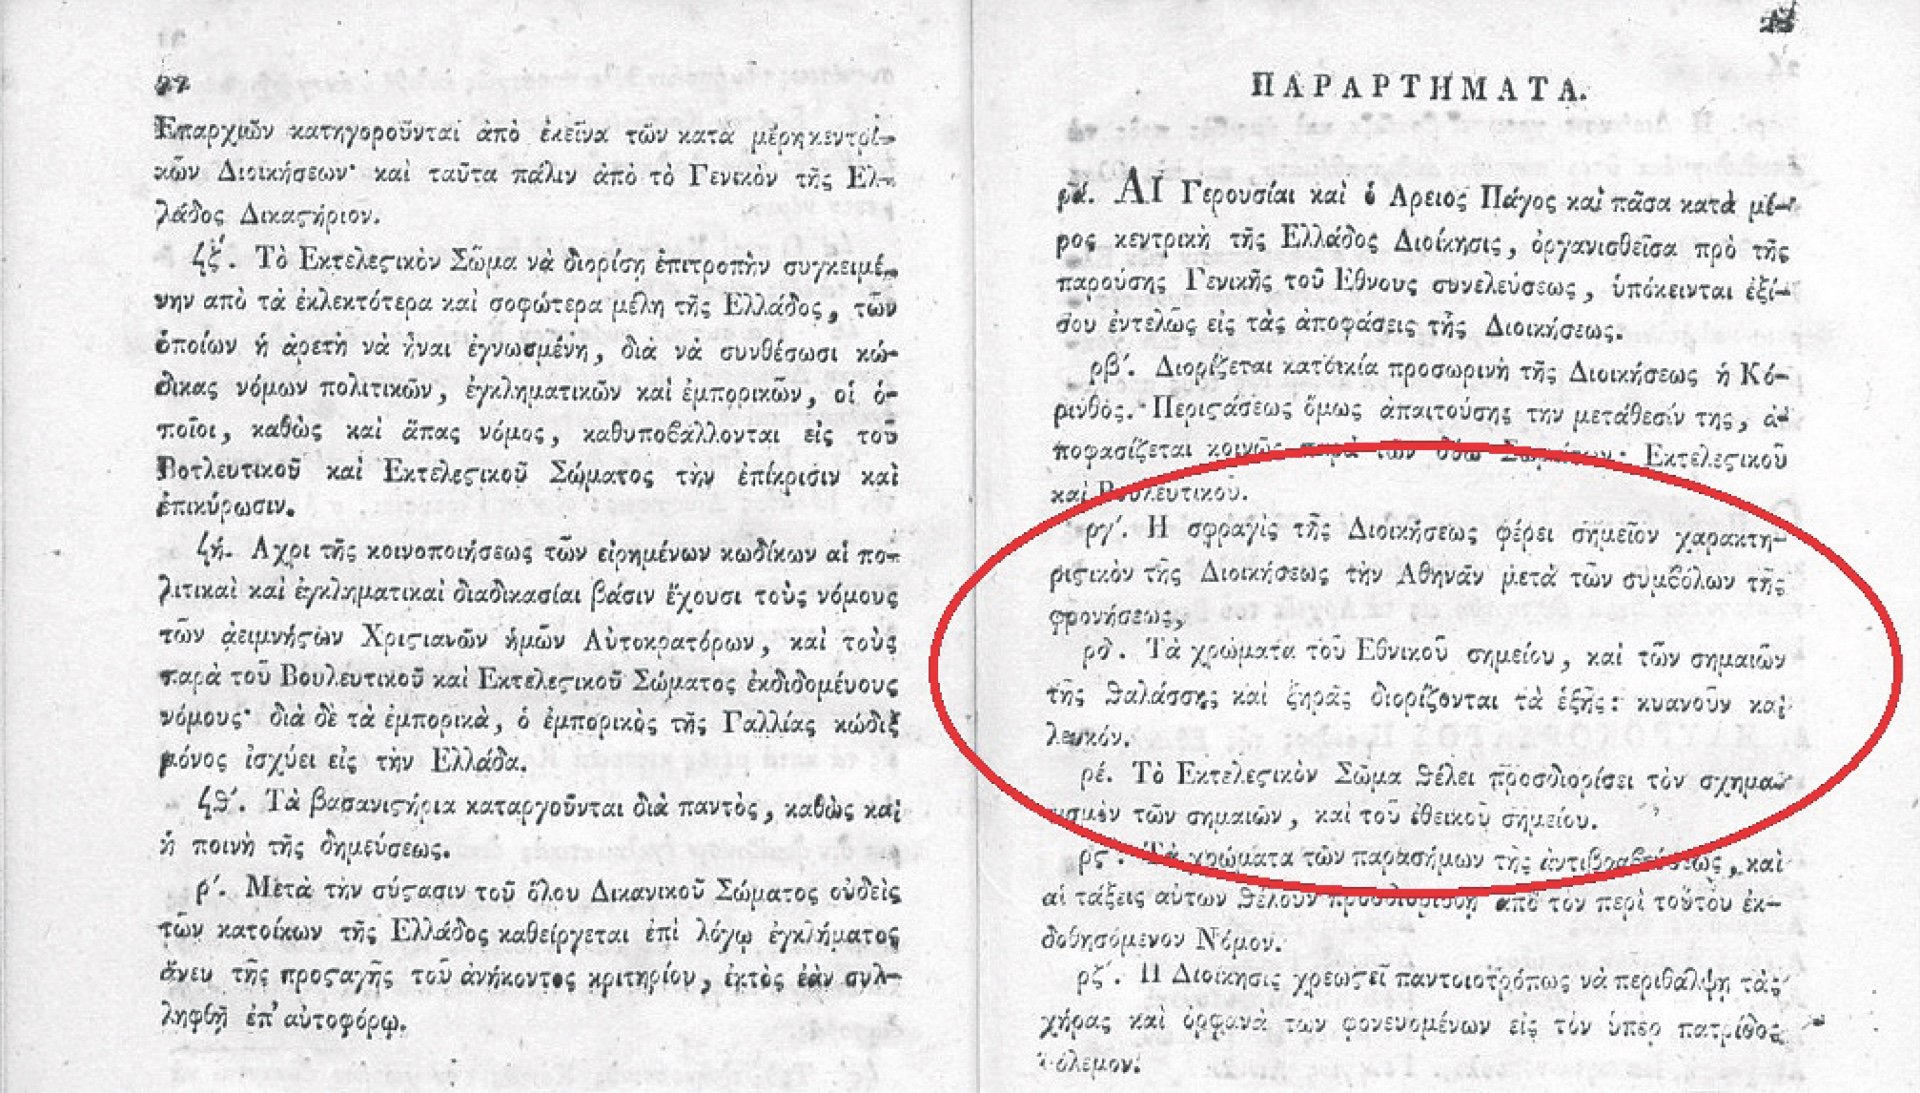 Ἐπαρχιῶν κατηγοροῦνται ἀπὸ ἐκεῖνα τῶν κατὰ μέρη κεντρι-
κῶν Διοικήσεων· καὶ ταῦτα πάλιν ἀπὸ τὸ Γενικὸν τῆς Ελ-
λάδος Δικαϛήριον.
ϟζ'. Τὸ Εκτελεϛικὸν Σῶμα νὰ διορίσῃ ἐπιτροπὴν συγκειμέ-
νην ἀπὸ τὰ ἐκλεκτότερα καὶ σοφώτερα μέλη τῆς Ελλάδος, τῶν
ὁποίων ἡ ἀρετὴ νὰ ἦναι ἐγνωσμένη, διὰ νὰ συνθέσωσι κώ-
δικας νόμων πολιτικῶν, ἐγκληματικῶν καὶ ἐμπορικῶν, οἱ ὁ-
ποῖοι, καθὼς καὶ ἅπας νόμος, καθυποβάλλονται εἰς τοῦ
Βοτλευτικοῦ καὶ Εκτελεϛικοῦ Σώματος τὴν ἐπίκρισιν καὶ
ἐπικύρωσιν.
ϟή. Αχρι τῆς κοινοποιήσεως τῶν εἰρημένων κωδίκων αἱ πο-
λιτικαὶ καὶ ἐγκληματικαὶ διαδικασίαι βάσιν ἔχουσι τοὺς νόμους
τῶν ἀειμνήϛων Χριϛιανῶν ἡμῶν Αὐτοκρατόρων, καὶ τοὺς
παρὰ τοῦ Βουλευτικοῦ καὶ Εκτελεϛικοῦ Σώματος ἐκδιδομένους
νόμους· διὰ δὲ τὰ ἐμπορικὰ, ὁ ἐμπορικὸς τῆς Γαλλίας κώδιξ
μόνος ἰσχύει εἰς τὴν Ελλάδα.
ϟθ'. Τὰ βασανιϛήρια καταργοῦνται διὰ παντὸς, καθὼς καὶ
ἡ ποινὴ τῆς δημεύσεως.
ρ'. Μετὰ τὴν σύϛασιν τοῦ ὅλου Δικανικοῦ Σώματος οὐδεὶς
τῶν κατοίκων τῆς Ελλάδος καθείργεται ἐπὶ λόγῳ ἐγκλήματος
ἄνευ τῆς προϛαγῆς τοῦ ἀνήκοντος κριτηρίου, ἐκτὸς ἐὰν συλ-
ληφθῇ ἐπ' αὐτοφόρῳ.
ΠΑΡΑΡΤΗΜΑΤΑ.
ρά. ΑΙ Γερουσίαι καὶ ὁ Αρειος Πάγος καὶ πᾶσα κατὰ μέ-
ρος κεντρικὴ τῆς Ελλάδος Διοίκησις, ὀργανισθεῖσα πρὸ τῆς
παρούσης Γενικῆς τοῦ Εθνους συνελεύσεως, ὑπόκεινται ἐξί-
σου ἐντελῶς εἰς τὰς ἀποφάσεις τῆς Διοικήσεως.
ρβ'. Διορίζεται κατοικία προσωρινὴ τῆς Διοικήσεως ἡ Κό-
ρινθος. Περιϛάσεως ὅμως ἀπαιτούσης τὴν μετάθεσίν της, ἀ-
ποφασίζεται κοινῶς παρὰ τῶν δύω Σωμάτων· Εκτελεϛικοῦ
καὶ Βουλευτικοῦ.
ργ'. Η σφραγὶς τῆς Διοικήσεως φέρει σημεῖον χαρακτη-
ριϛικὸν τῆς Διοικήσεως τὴν Αθηνᾶν μετὰ τῶν συμβόλων τῆς
φρονήσεως,
ρδ'. Τὰ χρώματα τοῦ Εθνικοῦ σημείου, καὶ τῶν σημαιῶν
τῆς θαλάσσης καὶ ξηρᾶς διορίζονται τὰ ἑξῆς: κυανοῦν καὶ
λευκόν.
ρέ. Τὸ Εκτελεϛικὸν Σῶμα θέλει προσδιορίσει τὸν σχημα-
τισμὸν τῶν σημαιῶν, καὶ τοῦ ἐθνικοῦ σημείου.
ρϛ'. Τὰ χρώματα τῶν παρασήμων τῆς ἀντιβραβεύσεως, καὶ
αἱ τάξεις αὐτῶν θέλουν προσδιορισθῆ ἀπὸ τὸν περὶ τούτου ἐκ-
δοθησόμενον Νόμον.
ρζ'. Η Διοίκησις χρεωϛεῖ παντοιοτρόπως νὰ περιθάλψῃ τὰς
χήρας καὶ ὀρφανὰ τῶν φονευομένων εἰς τὸν ὑπὲρ πατρίδος
πόλεμον.